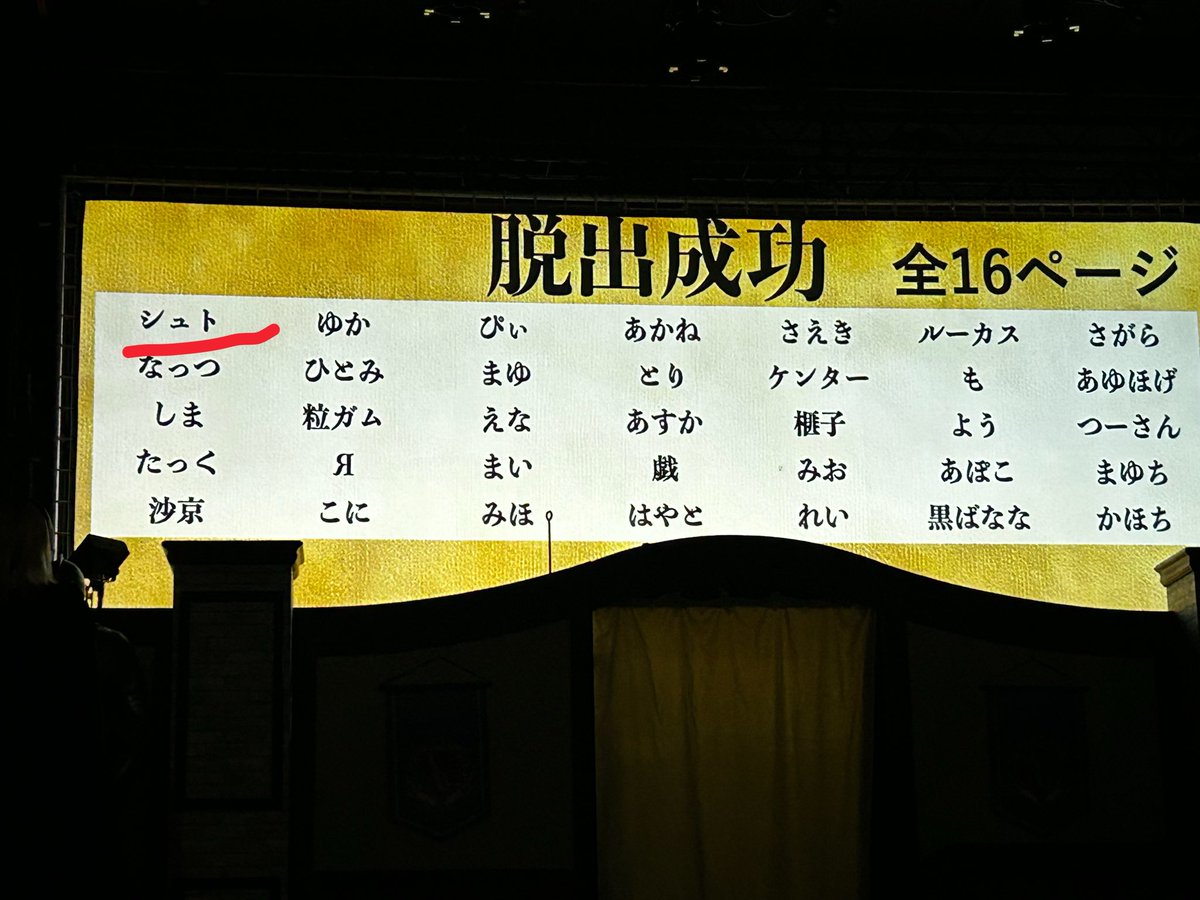 脱出成功 全16ページ
シュト ゆか ぴぃ あかね さえき ルーカス さがら
なっつ ひとみ まゆ とり ケンター も あゆほげ
しま 粒ガム えな あすか 榧子 よう つーさん
たっく Я まい 戯 みお あぽこ まゆち
沙京 こに みほ はやと れい 黒ばなな かほち